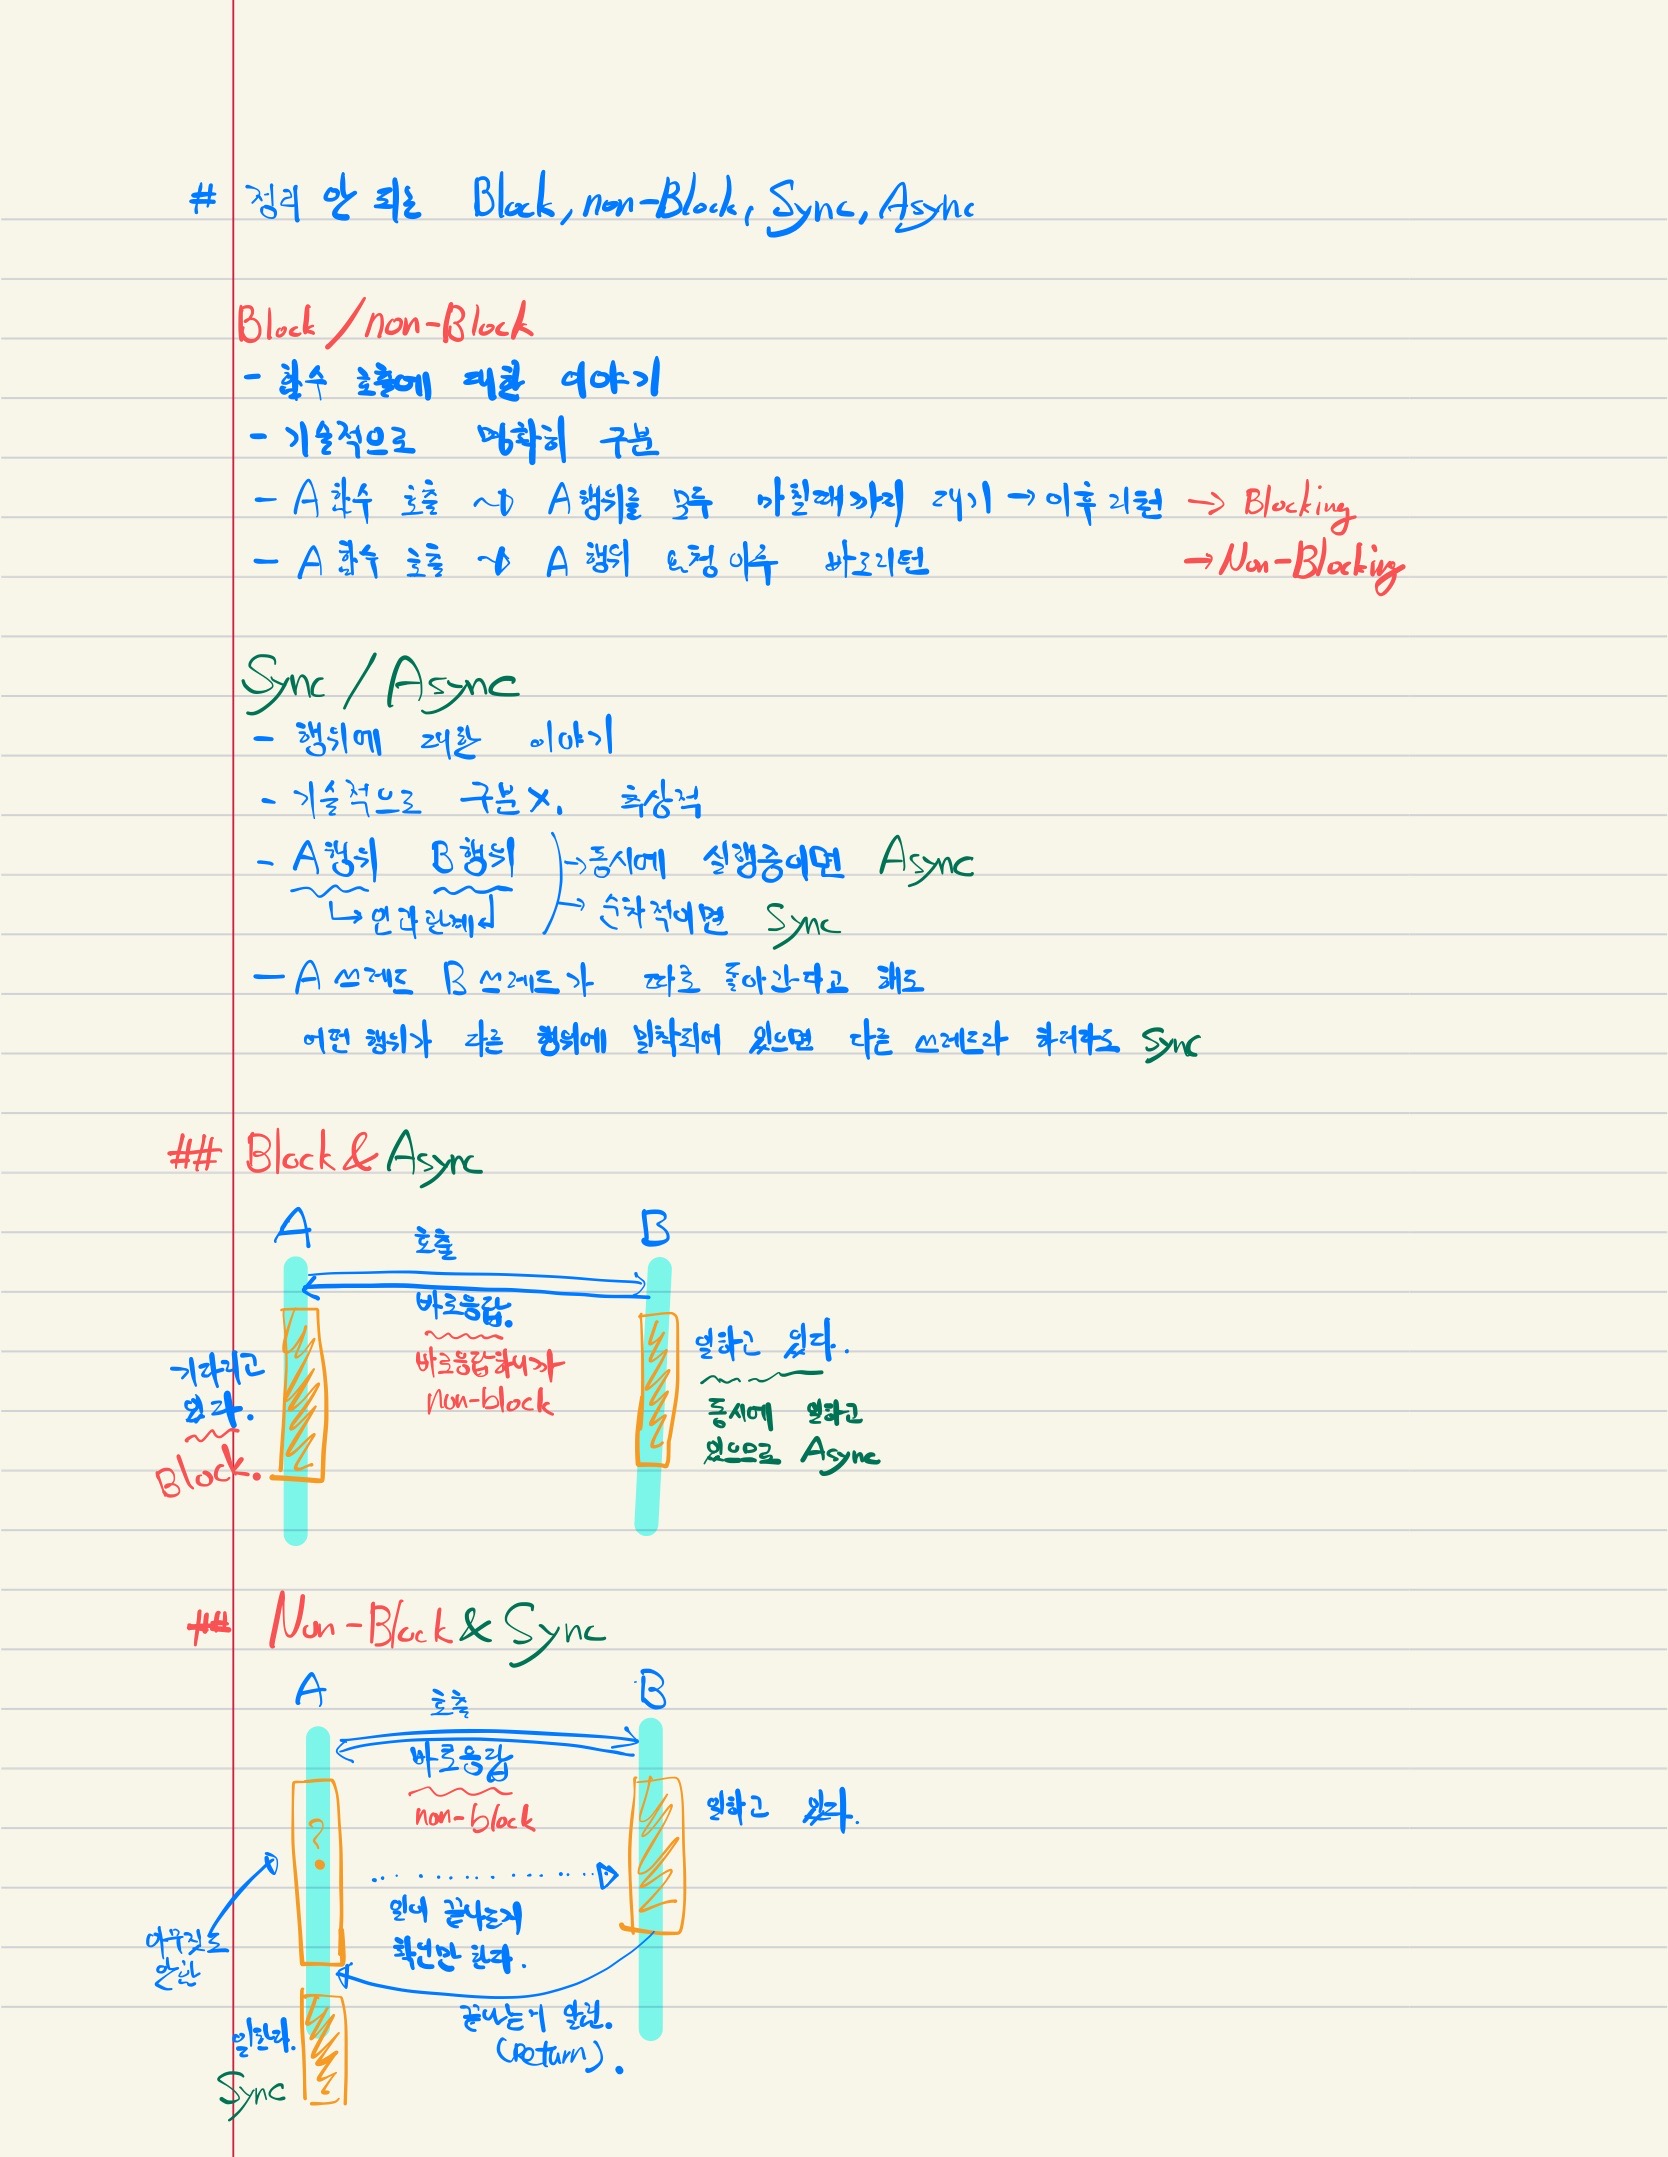 # 정리 안 되는 Block, non-Block, Sync, Async
Block / non-Block
- 함수 호출에 대한 이야기
- 기술적으로 명확히 구분
- A 함수 호출 ~> A행위를 모두 마칠때까지 대기 → 이후 리턴 → Blocking
- A 함수 호출 ~> A 행위 요청 이후 바로리턴 → Non-Blocking
Sync / Async
- 행위에 대한 이야기
- 기술적으로 구분 X. 추상적
- A행위 B행위 → 동시에 실행중이면 Async
↳ 인과관계 → 순차적이면 Sync
- A 쓰레드 B 쓰레드가 따로 돌아간다고 해도
어떤 행위가 다른 행위에 밀착되어 있으면 다른 쓰레드라 하더라도 Sync
## Block & Async
A B
호출
바로응답.
바로응답하니까
non-block
기다리고
있다.
Block.
일하고 있다.
동시에 일하고
있으므로 Async
## Non-Block & Sync
A B
호출
바로응답
non-block
일하고 있다.
일이 끝나는지
확인만 한다.
아무짓도
안함
끝나는거 알림.
(Return).
일한다.
Sync